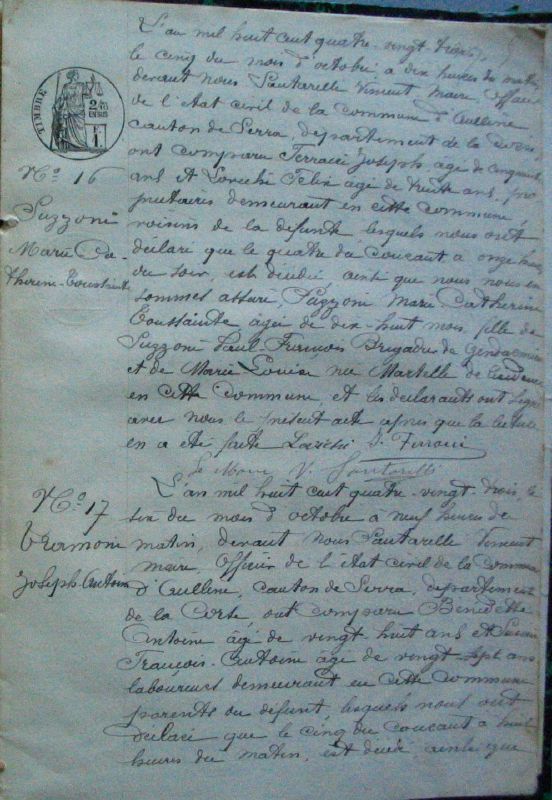 L'an mil huit cent quatre-vingt trois,
le cinq du mois d'octobre à dix heures du matin,
devant Nous Santarelle Vincent Maire, officier
de l'état civil de la commune d'Aullène
canton de Serra, département de la Corse,
ont comparu Ferracci Joseph âgé de cinquante
ans et Lorecchi Felix âgé de trente ans, pro
priétaires demeurant en cette commune,
voisins de la défunte lesquels nous ont
déclaré que le quatre du courant à onze heures
du soir est décédée, ainsi que nous nous en
sommes assuré, Suzzoni Marie Catherine
Toussainte âgée de dix-huit mois, fille de
Suzzoni Paul François Brigadier de Gendarmerie
et de Marie Louise née Martelle de
en cette Commune, et les déclarants ont signé
avec nous le présent acte après que la lecture
en a été faite
Le Maire V. Santarelli
TIMBRE
N° 16
Suzzoni
Marie Ca-
therine-Toussainte
L'an mil huit cent quatre-vingt-trois, le
six du mois d'octobre à neuf heures de
matin, devant Nous Santarelle Vincent
Maire, Officier de l'état civil de la Commune
d'Aullène, canton de Serra, département
de la Corse, ont comparu Benedette
Antoine âgé de vingt huit ans et
François-Antoine âgé de vingt-sept ans
laboureurs demeurant en cette commune
parents du défunt, lesquels nous ont
déclaré que le cinq du courant à huit
heures du matin, est décédé ainsi que
N° 17
Joseph-Antoine